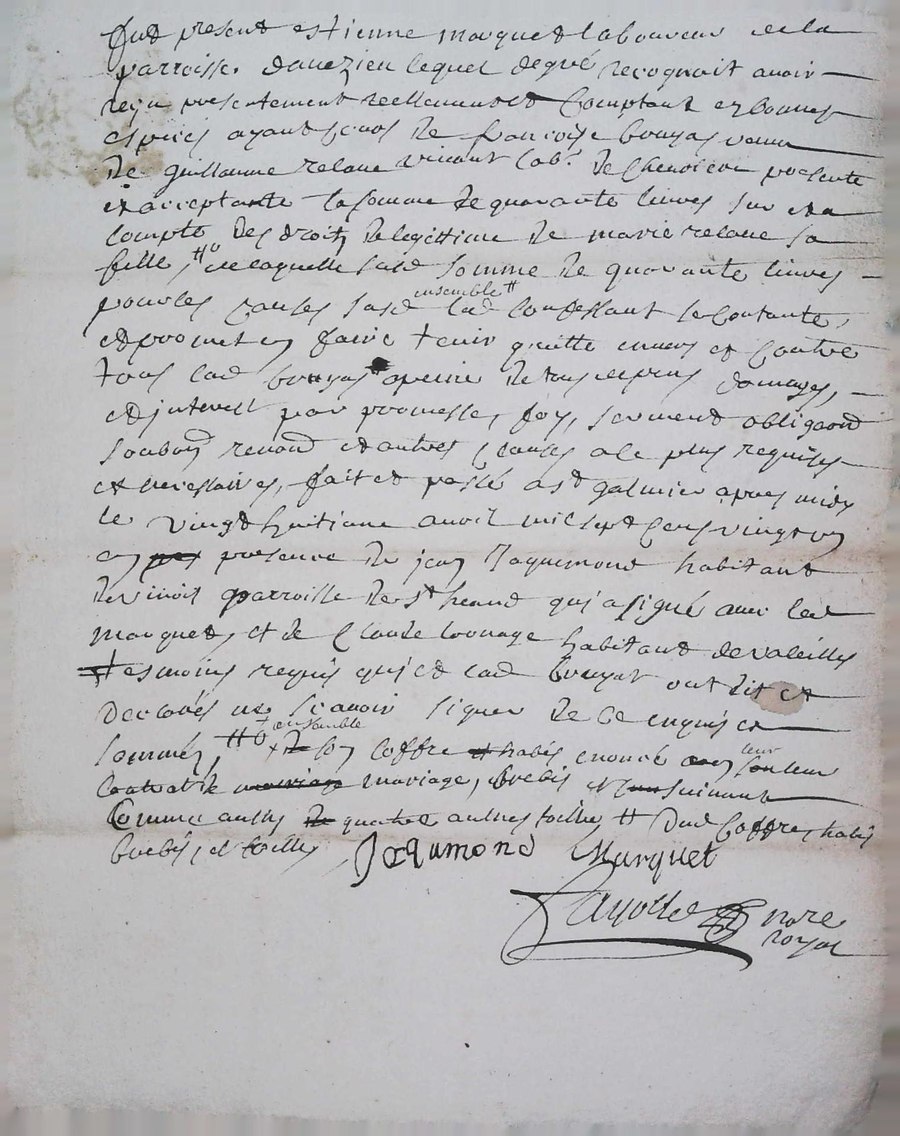 Fut present estienne marquet laboureur de la
parroisse daveizieu lequel de gré recognoit avoir
reçu presentement reellement et comptant en bonnes
especes ayant cours de francoise bouyas veuve
de guillaume relave vivant lab.r de chenereu presente
et acceptante la somme de quarante livres sur et a
compte des droits de legittime de marie relave sa
fille, #o de laquelle susd somme de quarante livres
pour les causes susd ensemble # lad confessant se contante,
et promet en faire tenir quitte envers et contre
tous lad bouyas a peine de tous depens domages,
et jnterest par promesse, foy, serment obligaond
soubond renond et autres clauses a ce plus requises
et necessaires, fait et passé a st galmier apres midy
le vingt huitieme avril mil sept cens vingt un
en presence de jean Jaquemond habitant
de vinois parroisse de st heand qui a signé avec led
marquet, et de Claude
habitant de valeilles
tesmoins requis qui et lad bouyas ont dit et
declarés ne scavoir signer de ce enquis et
sommés, #o + ensemble son coffre habis enoncé leur
contrat de mariage, brebis suivant
Comme aussy quatre autres toilles # dud coffre, habis
brebis, et toilles Jaqumond Marquet
nore
royal